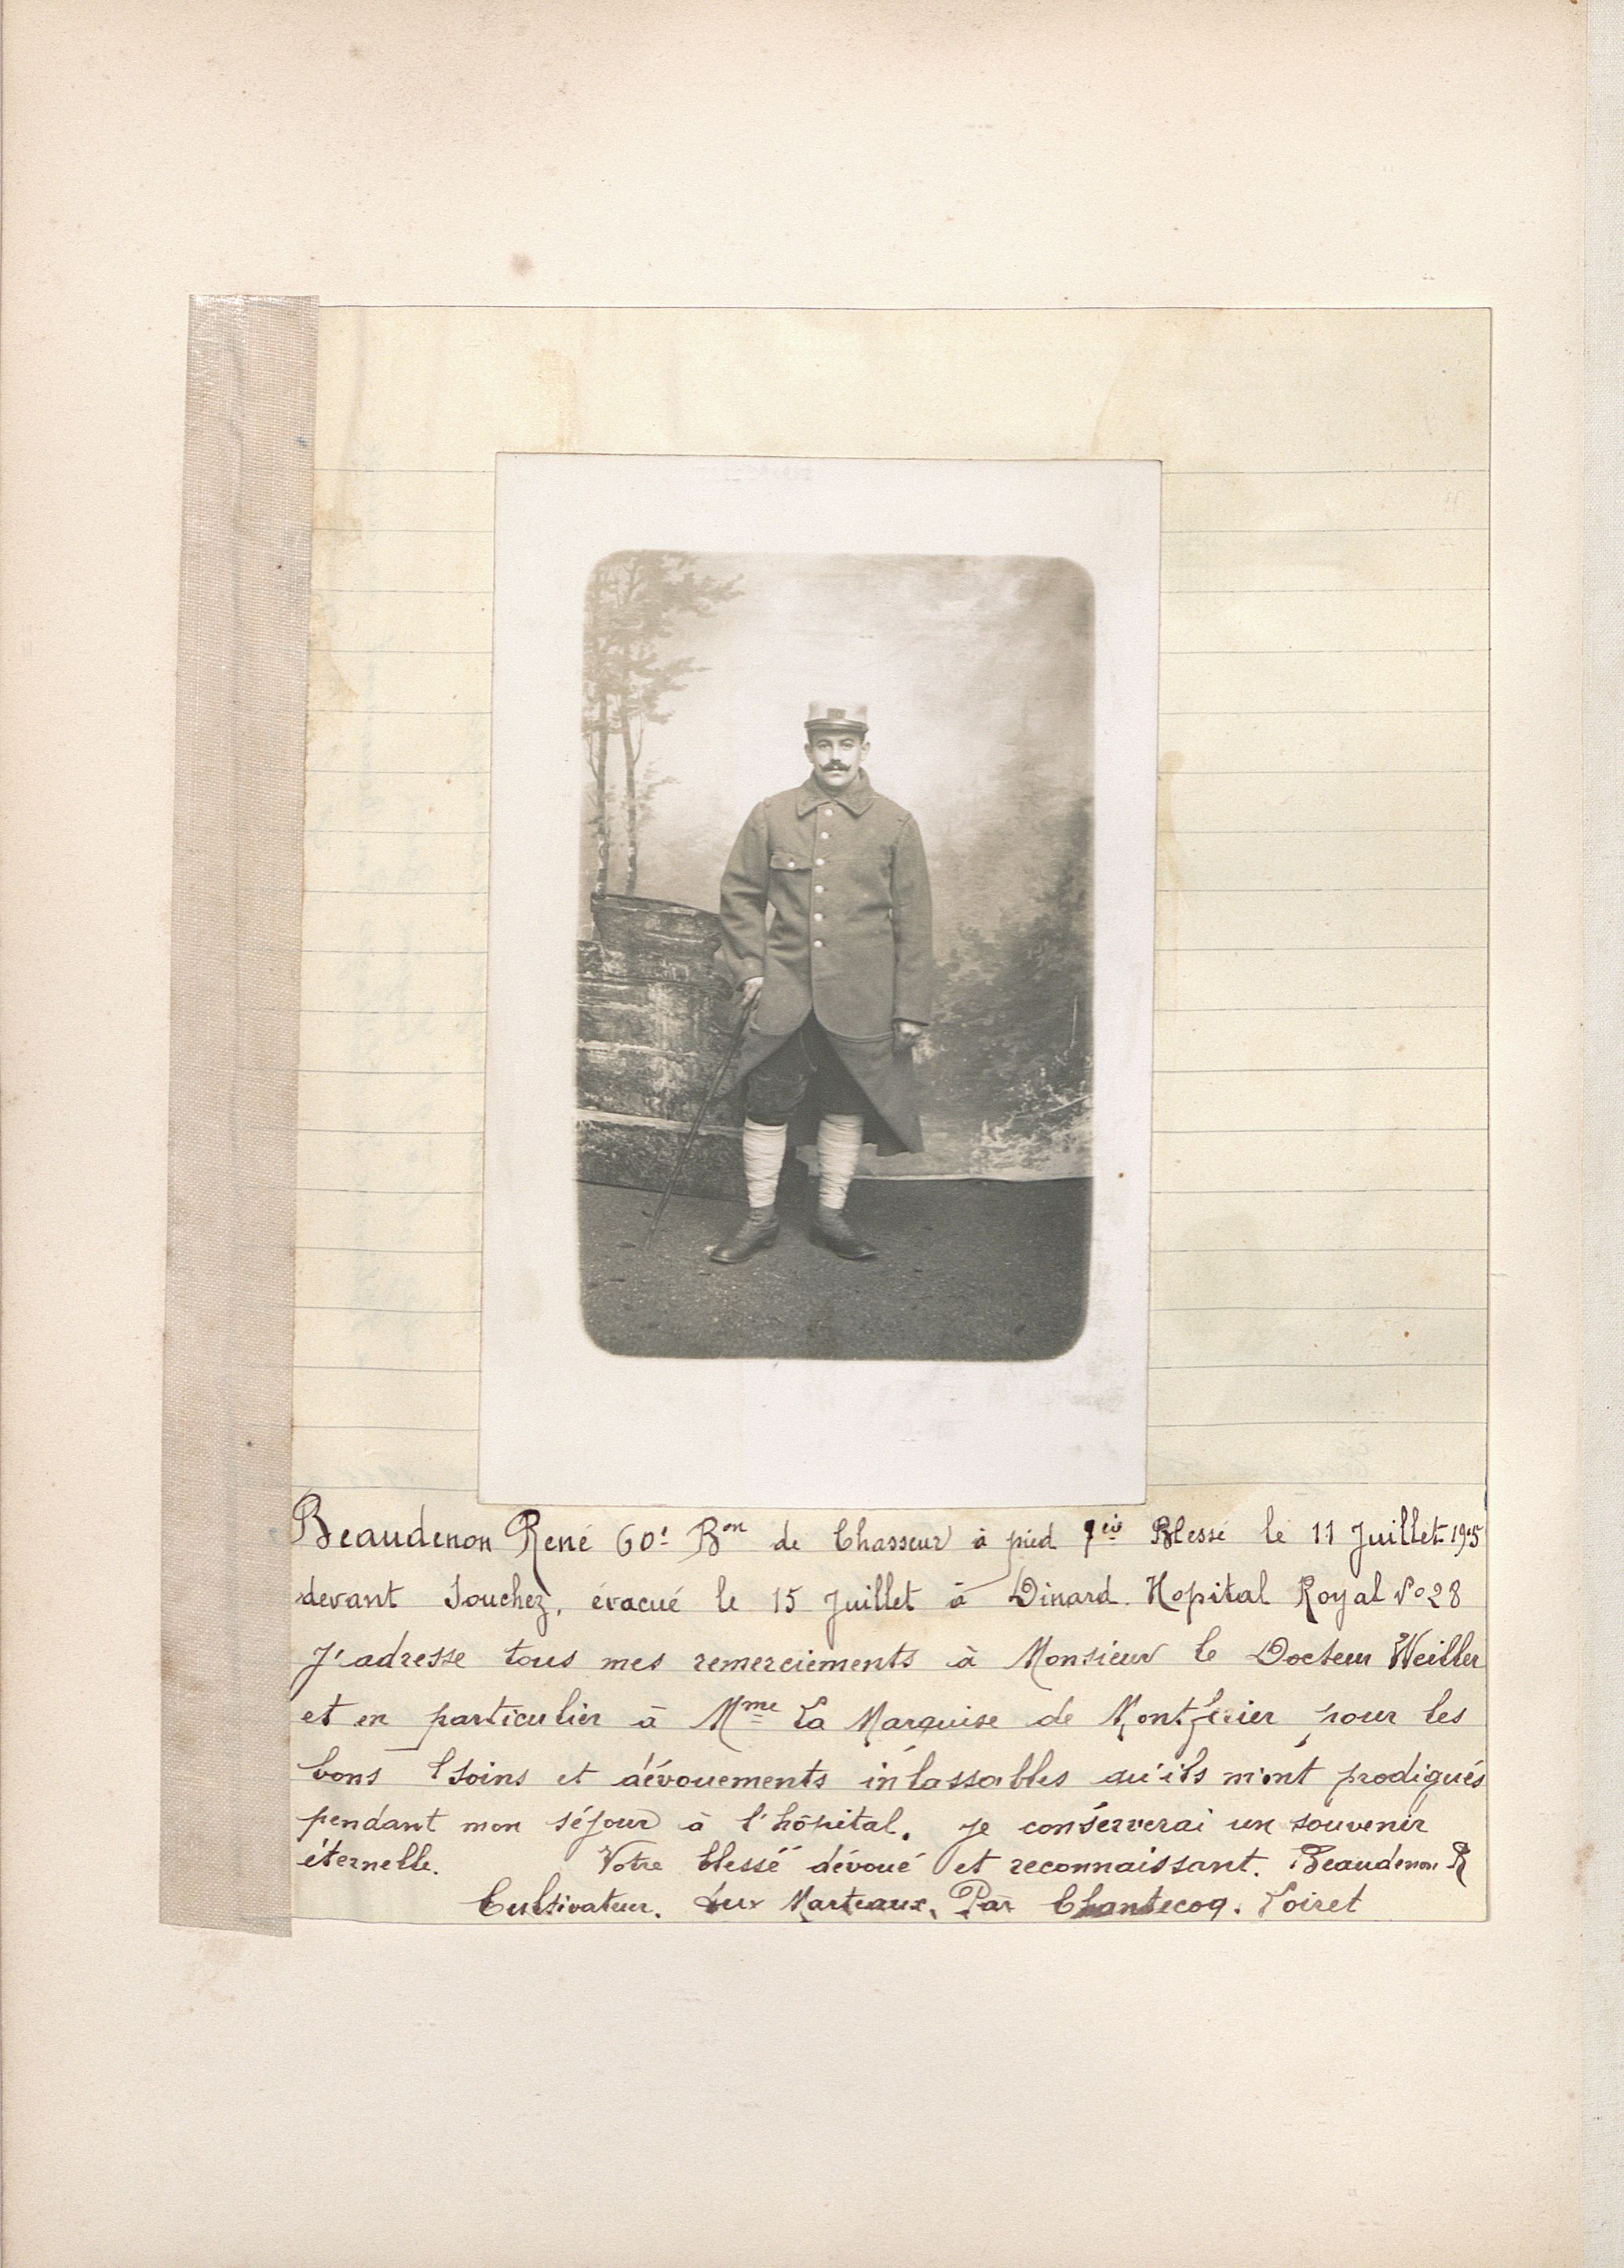 Beaudenon René 60e Bon de Chasseur à pied 9eie Blessé le 11 Juillet 1915
devant Souchez, évacué le 15 Juillet à Dinard. Hopital Royal No 28
J'adresse tous mes remerciements à Monsieur le Docteur Weiller
et en particulier à Mme La Marquise de Montferier pour les
bons Soins et dévouements inlassables qu'ils m'ont prodigués
pendant mon séjour à l'hôpital. je consérverai un souvenir
éternelle. Votre blessé dévoué et reconnaissant. Beaudenon R
Cultivateur. aux Marteaux, Par Chantecoq. Loiret